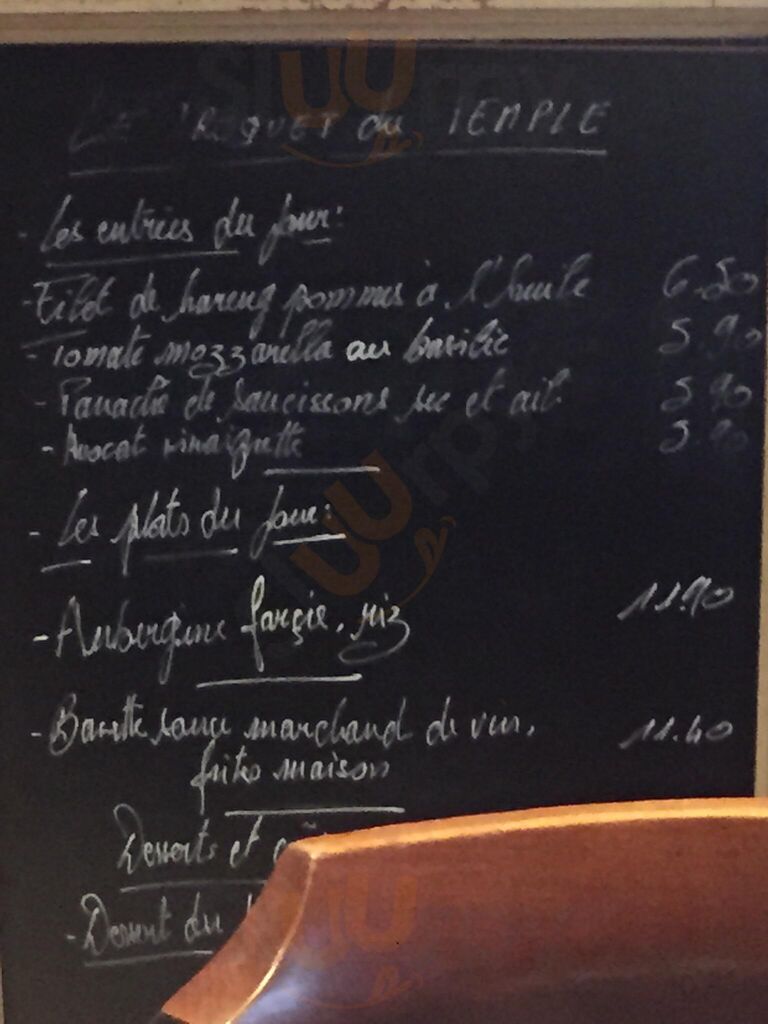 LE TROQUET du TEMPLE
- Les entrées du jour:
- Filet de hareng pommes à l'huile 6.50
- Tomate mozzarella au basilic 5.90
- Panaché de saucissons sec et ail 5.90
- Avocat vinaigrette 5.90
- Les plats du jour:
- Aubergine farçie, riz 11.90
- Bavette sauce marchand de vin, 11.40
frites maison
Desserts et
- Dessert du